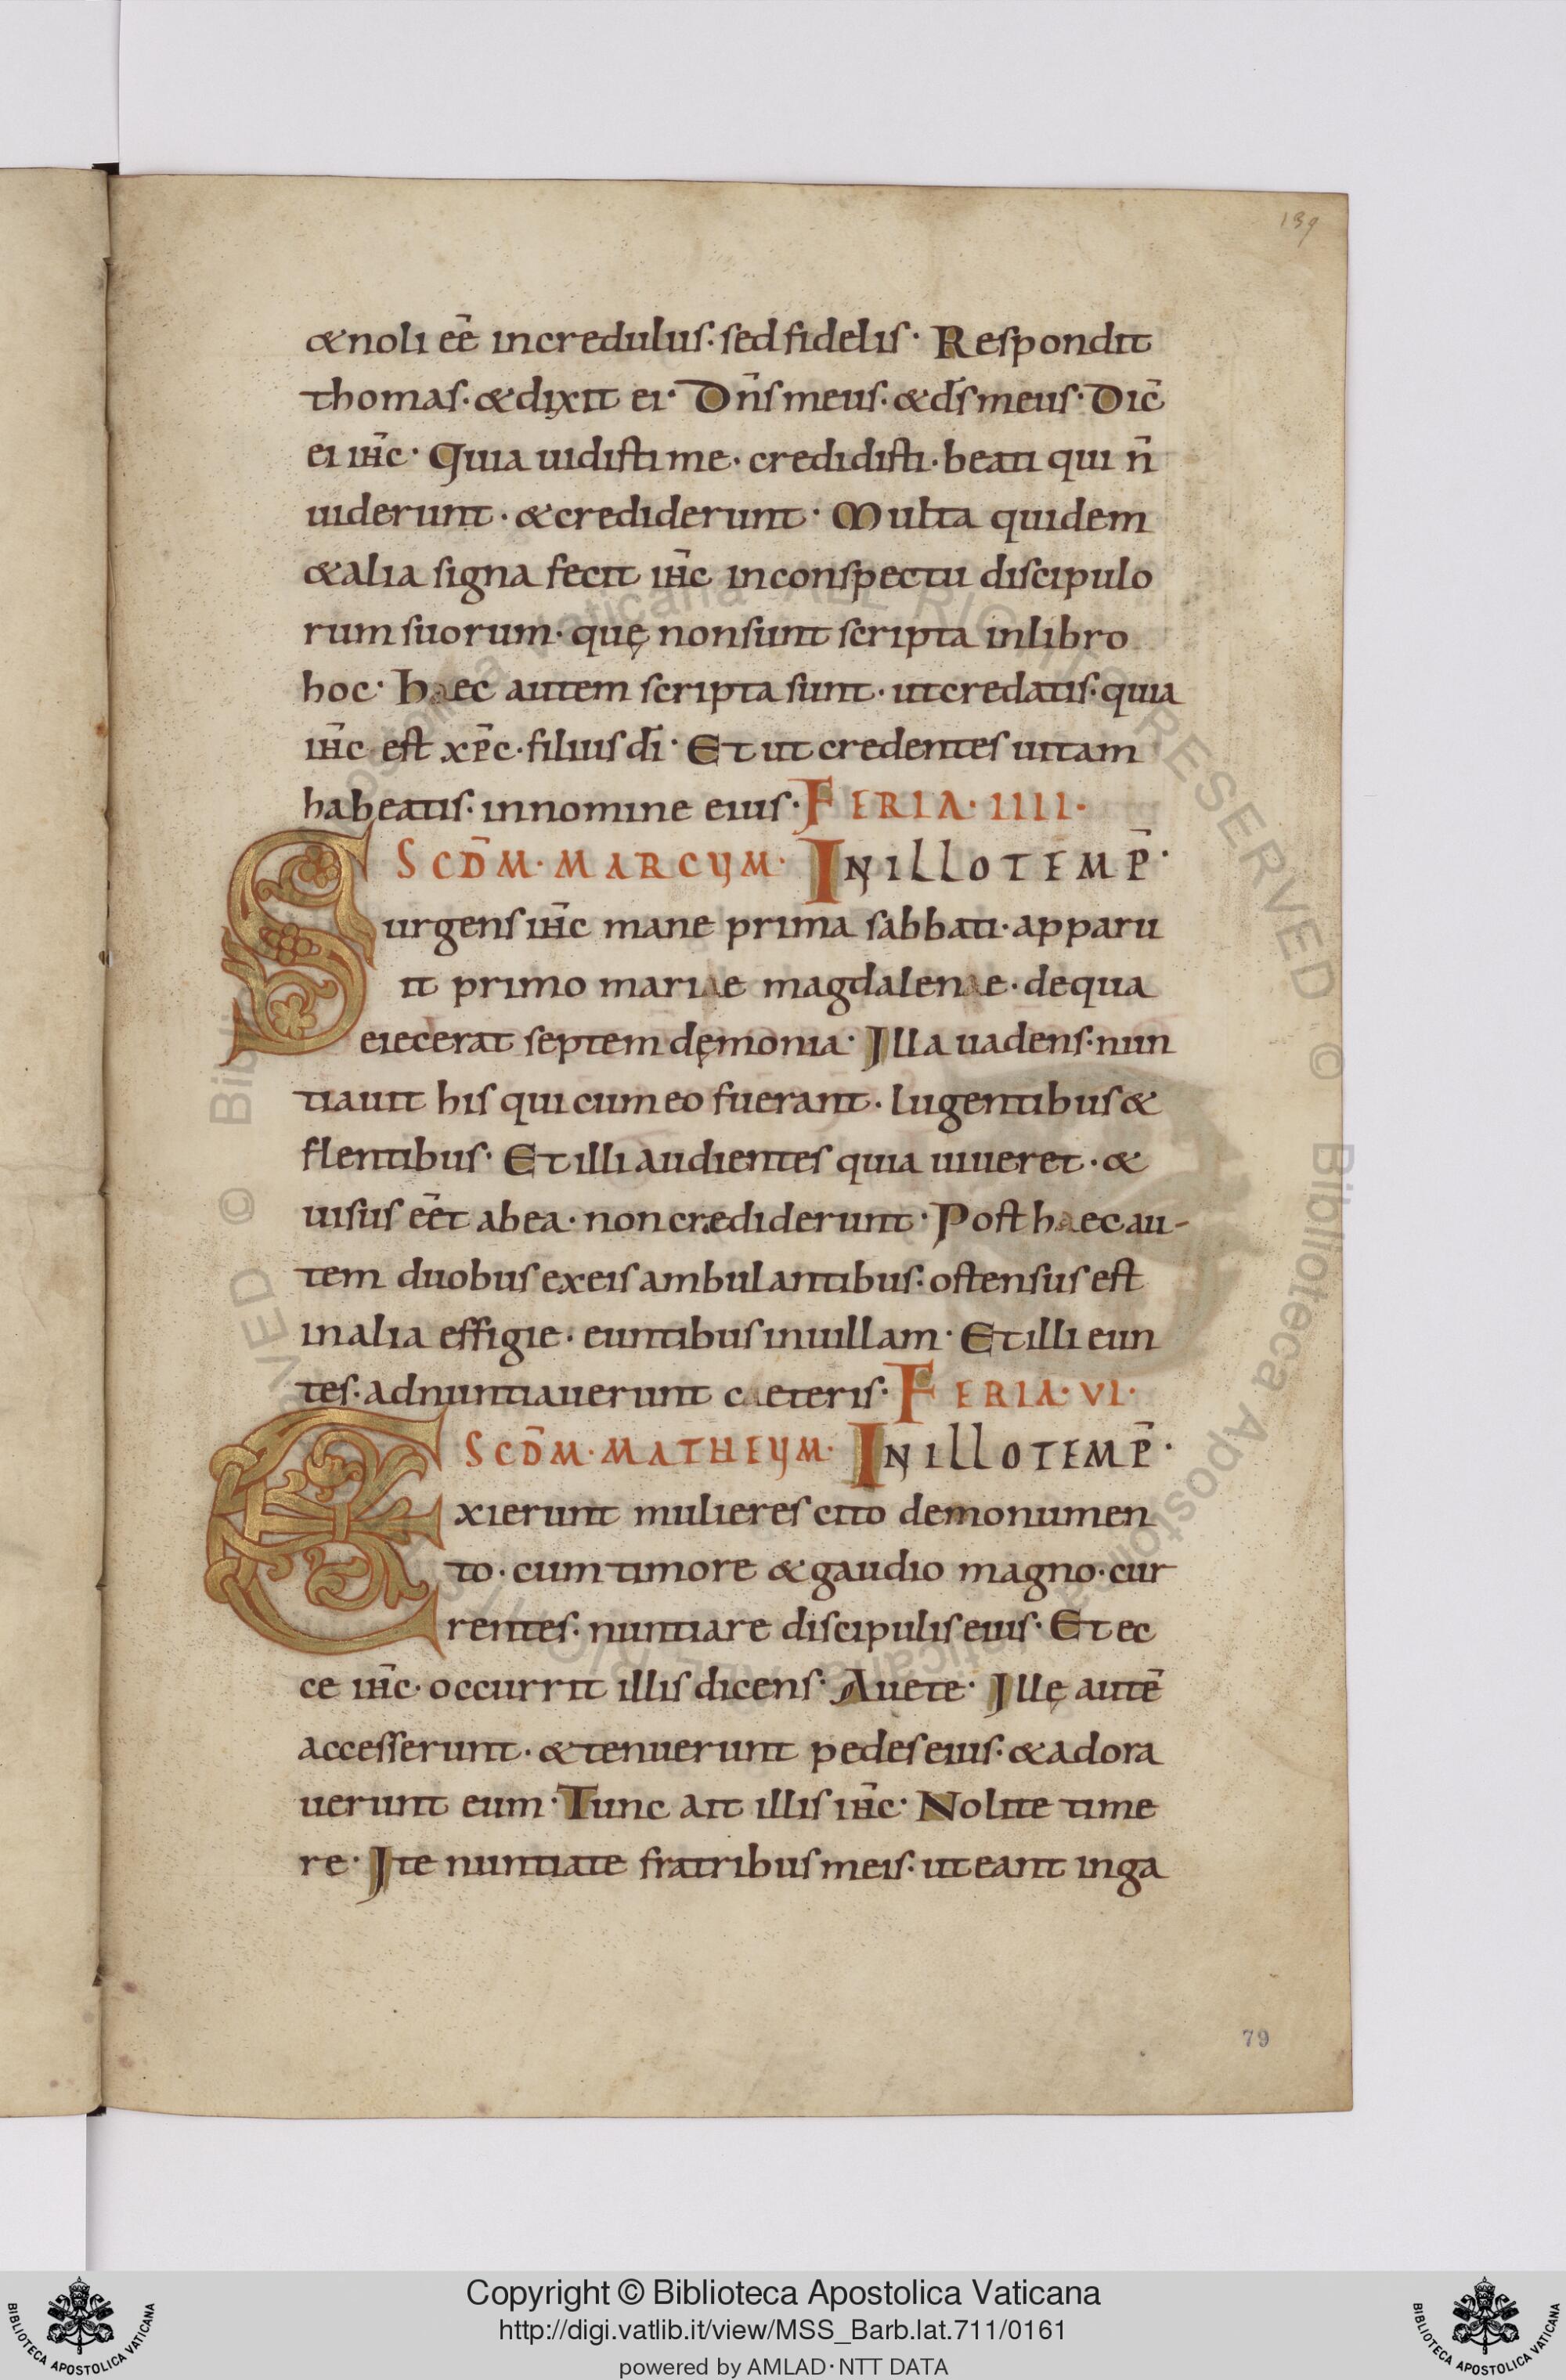 139
& noli eē incredulus· sed fidelis· Respondit
thomas· & dixit ei· Dn̄s meus· & d̄s meus· Dic̄
ei ih̄c· Quia uidisti me· credidisti· beati qui n̄
uiderunt· & crediderunt· Multa quidem
& alia signa fecit ih̄c in conspectu discipulo
rum suorum· quę non sunt scripta in libro
hoc· Haec autem scripta sunt· ut credatis· quia
ih̄c est xp̄c· filius dī· Et ut credentes uitam
habeatis· in nomine eius· FERIA· IIII·
SCD̄M· MARCUM· IN ILLO TEMP̄·
Surgens ih̄c mane prima sabbati· apparu
it primo mariae magdalenae· de qua
eiecerat septem dęmonia· Illa uadens· nun
tiauit his qui cum eo fuerant· lugentibus &
flentibus· Et illi audientes quia uiueret· &
uisus eēt ab ea· non crediderunt· Post haec au-
tem duobus ex eis ambulantibus· ostensus est
in alia effigie· euntibus in uillam· Et illi eun
tes· adnuntiauerunt caeteris· FERIA· VI·
SCD̄M· MATHEUM· IN ILLO TEMP̄·
Exierunt mulieres cito de monumen
to· cum timore & gaudio magno· cur
rentes· nuntiare discipulis eius· Et ec
ce ih̄c· occurrit illis dicens· Auete· Illę autē
accesserunt· & tenuerunt pedes eius· & adora
uerunt eum· Tunc ait illis ih̄c· Nolite time
re· Ite nuntiate fratribus meis· ut eant in ga
79
Copyright © Biblioteca Apostolica Vaticana
http://digi.vatlib.it/view/MSS_Barb.lat.711/0161
powered by AMLAD·NTT DATA
BIBLIOTECA APOSTOLICA VATICANA
BIBLIOTECA APOSTOLICA VATICANA